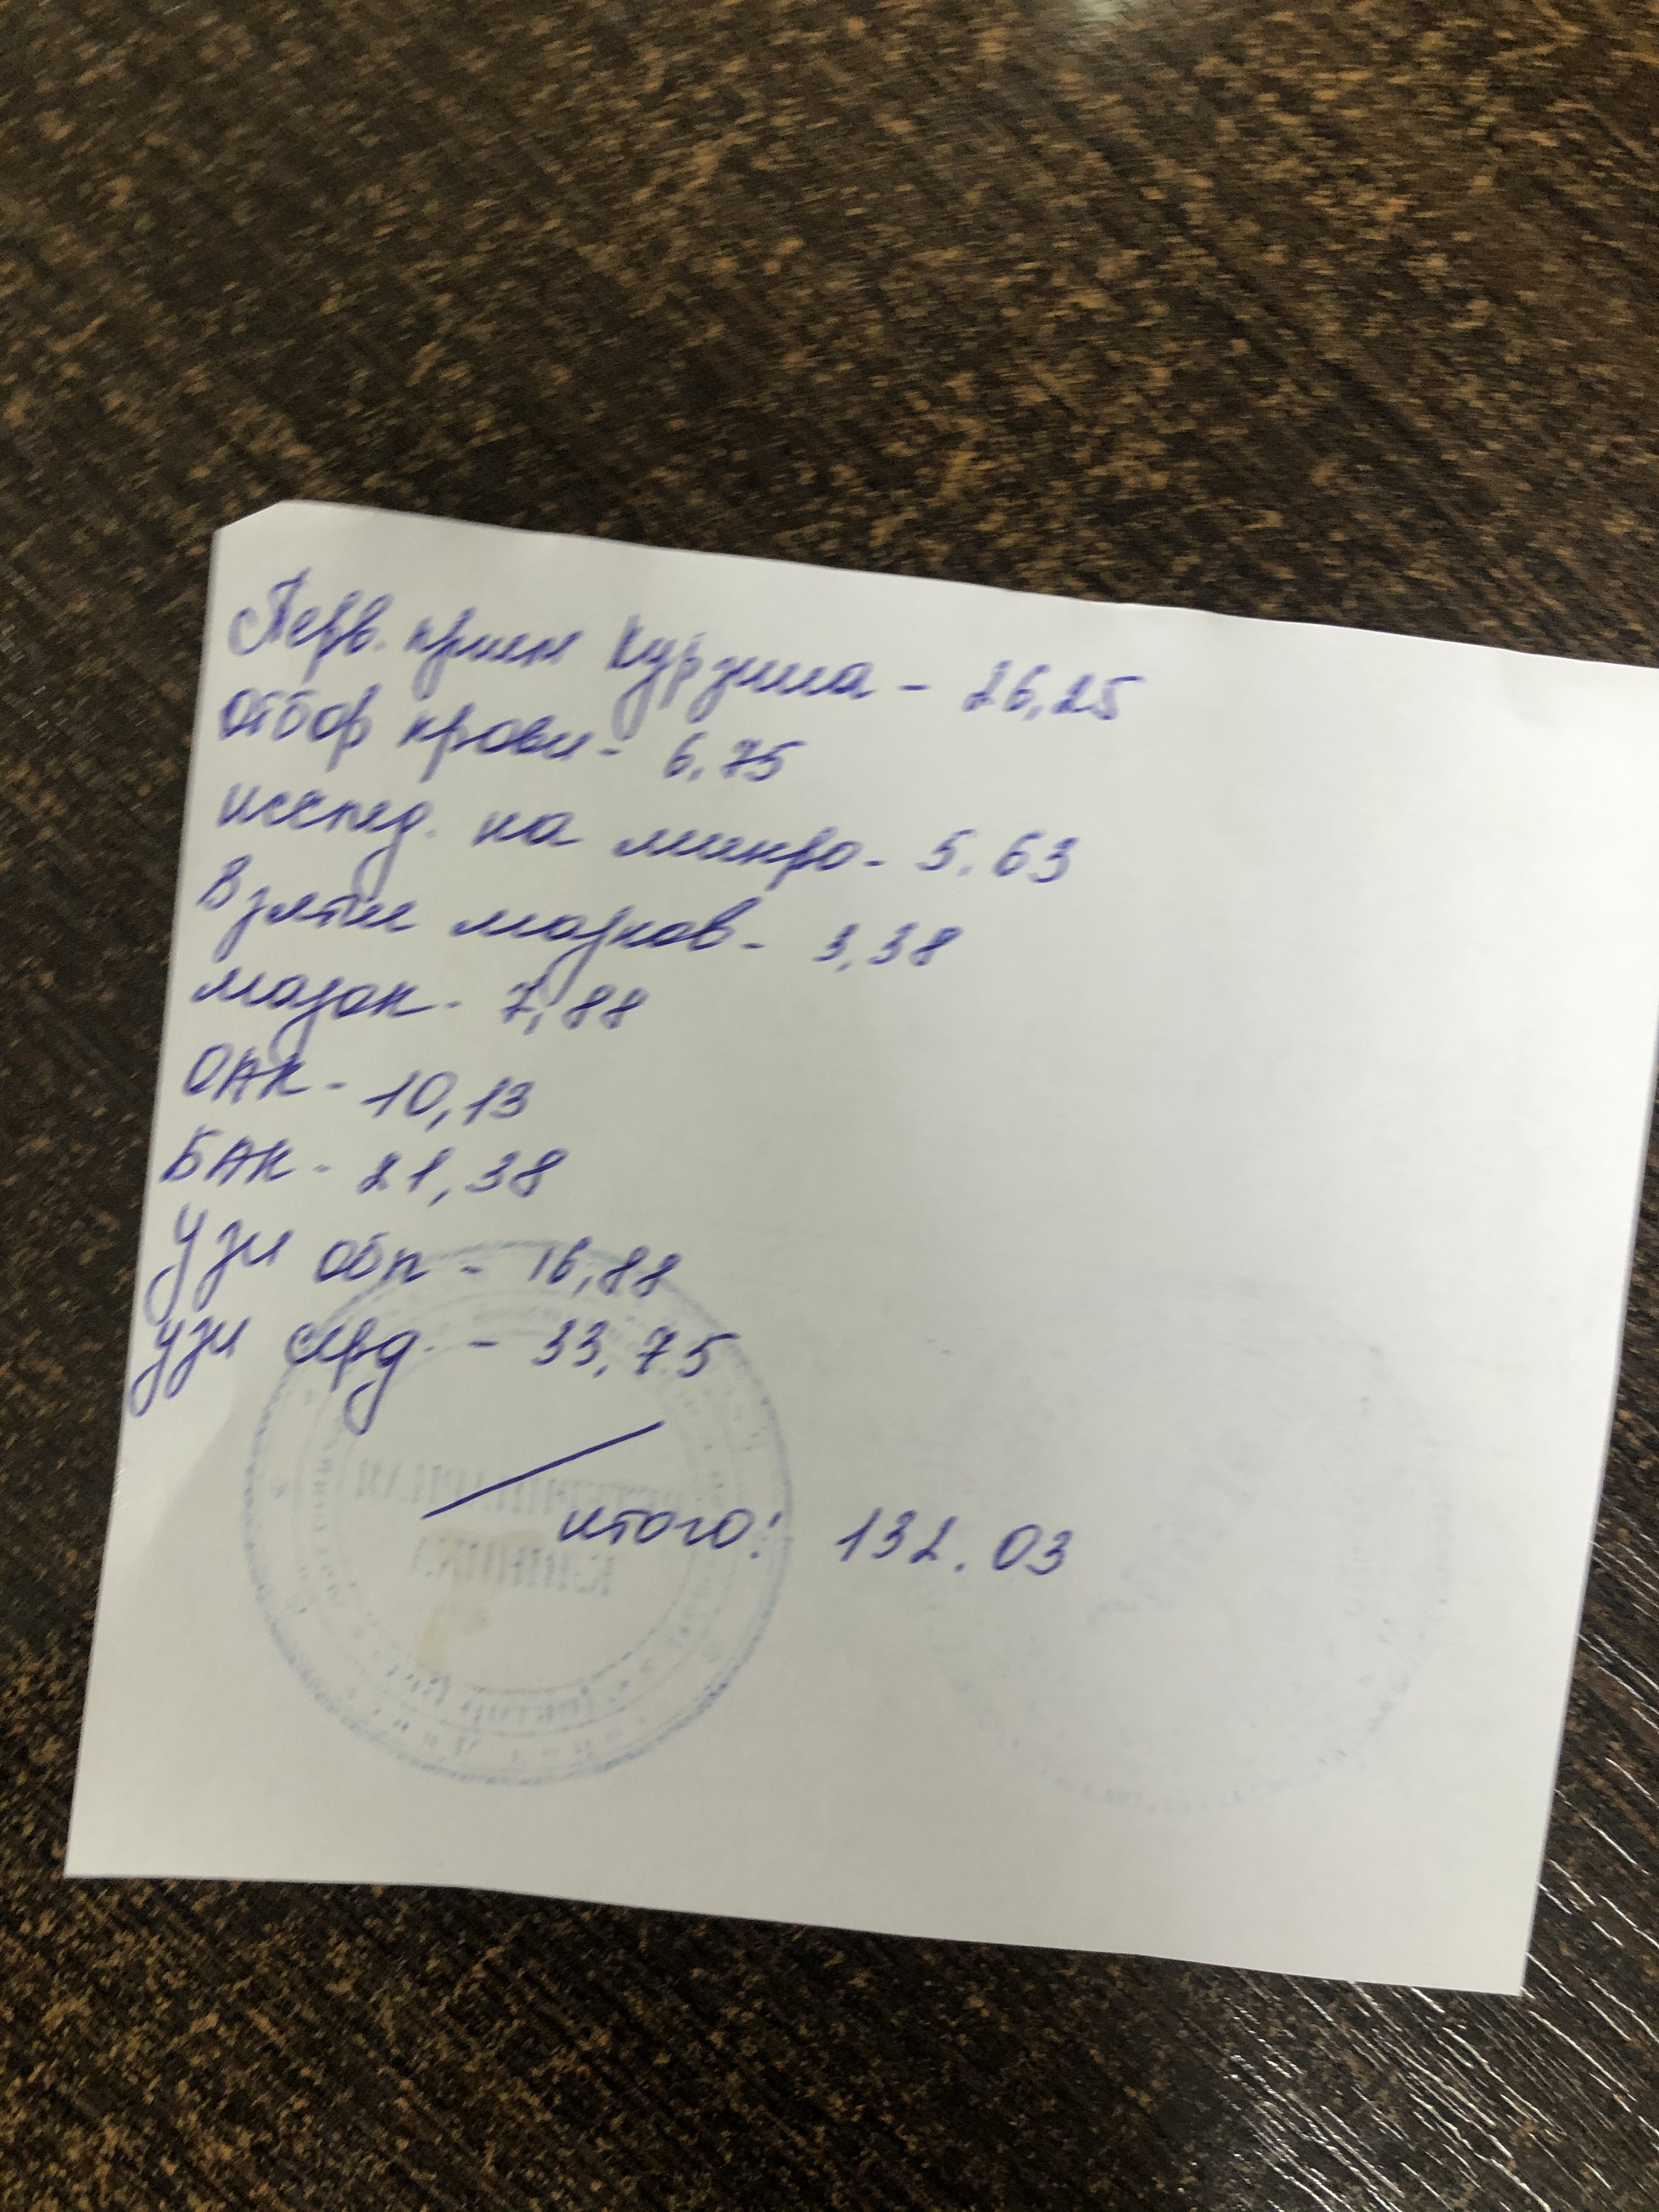 Перв. прием Курзина - 26,25
Отбор крови - 6,75
исслед. на микро - 5.63
Взятие мазков - 3,38
мазок - 7,88
ОАК - 10,13
БАК - 21,38
узи обп - 16,88
узи серд. - 33,75
итого: 132.03
ВЕТЕРИНАРНАЯ
КЛИНИКА